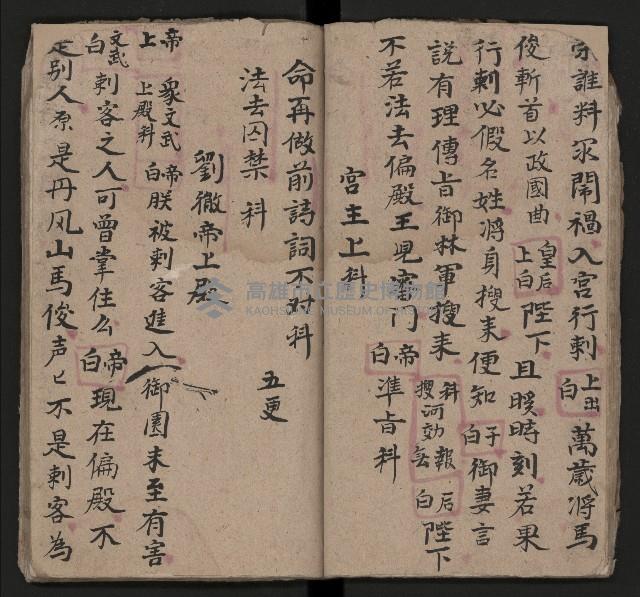 家誰料眾鬧禍入宮行刺 上出白 萬歲将馬
俊斬首以政國曲 皇后上白 陛下且暖時刻若果
行刺必假名姓将身搜来便知 子白 御妻言
說有理傳旨御林軍搜来 科搜河効報 后白 陛下
不若法去偏殿王児審门 帝白 準旨科
宮主上科
命再做前詩詞不对科
法去囚禁 科 五更
劉徹帝上殿
帝上 眾文武上殿科 帝白 朕被刺客進入御園未至有害
文武白 刺客之人可曾掌住么 帝白 現在偏殿不
是别人原是丹风山馬俊声匕不是刺客為
高雄市立歷史博物館
KAOHSIUNG MUSEUM OF HISTORY